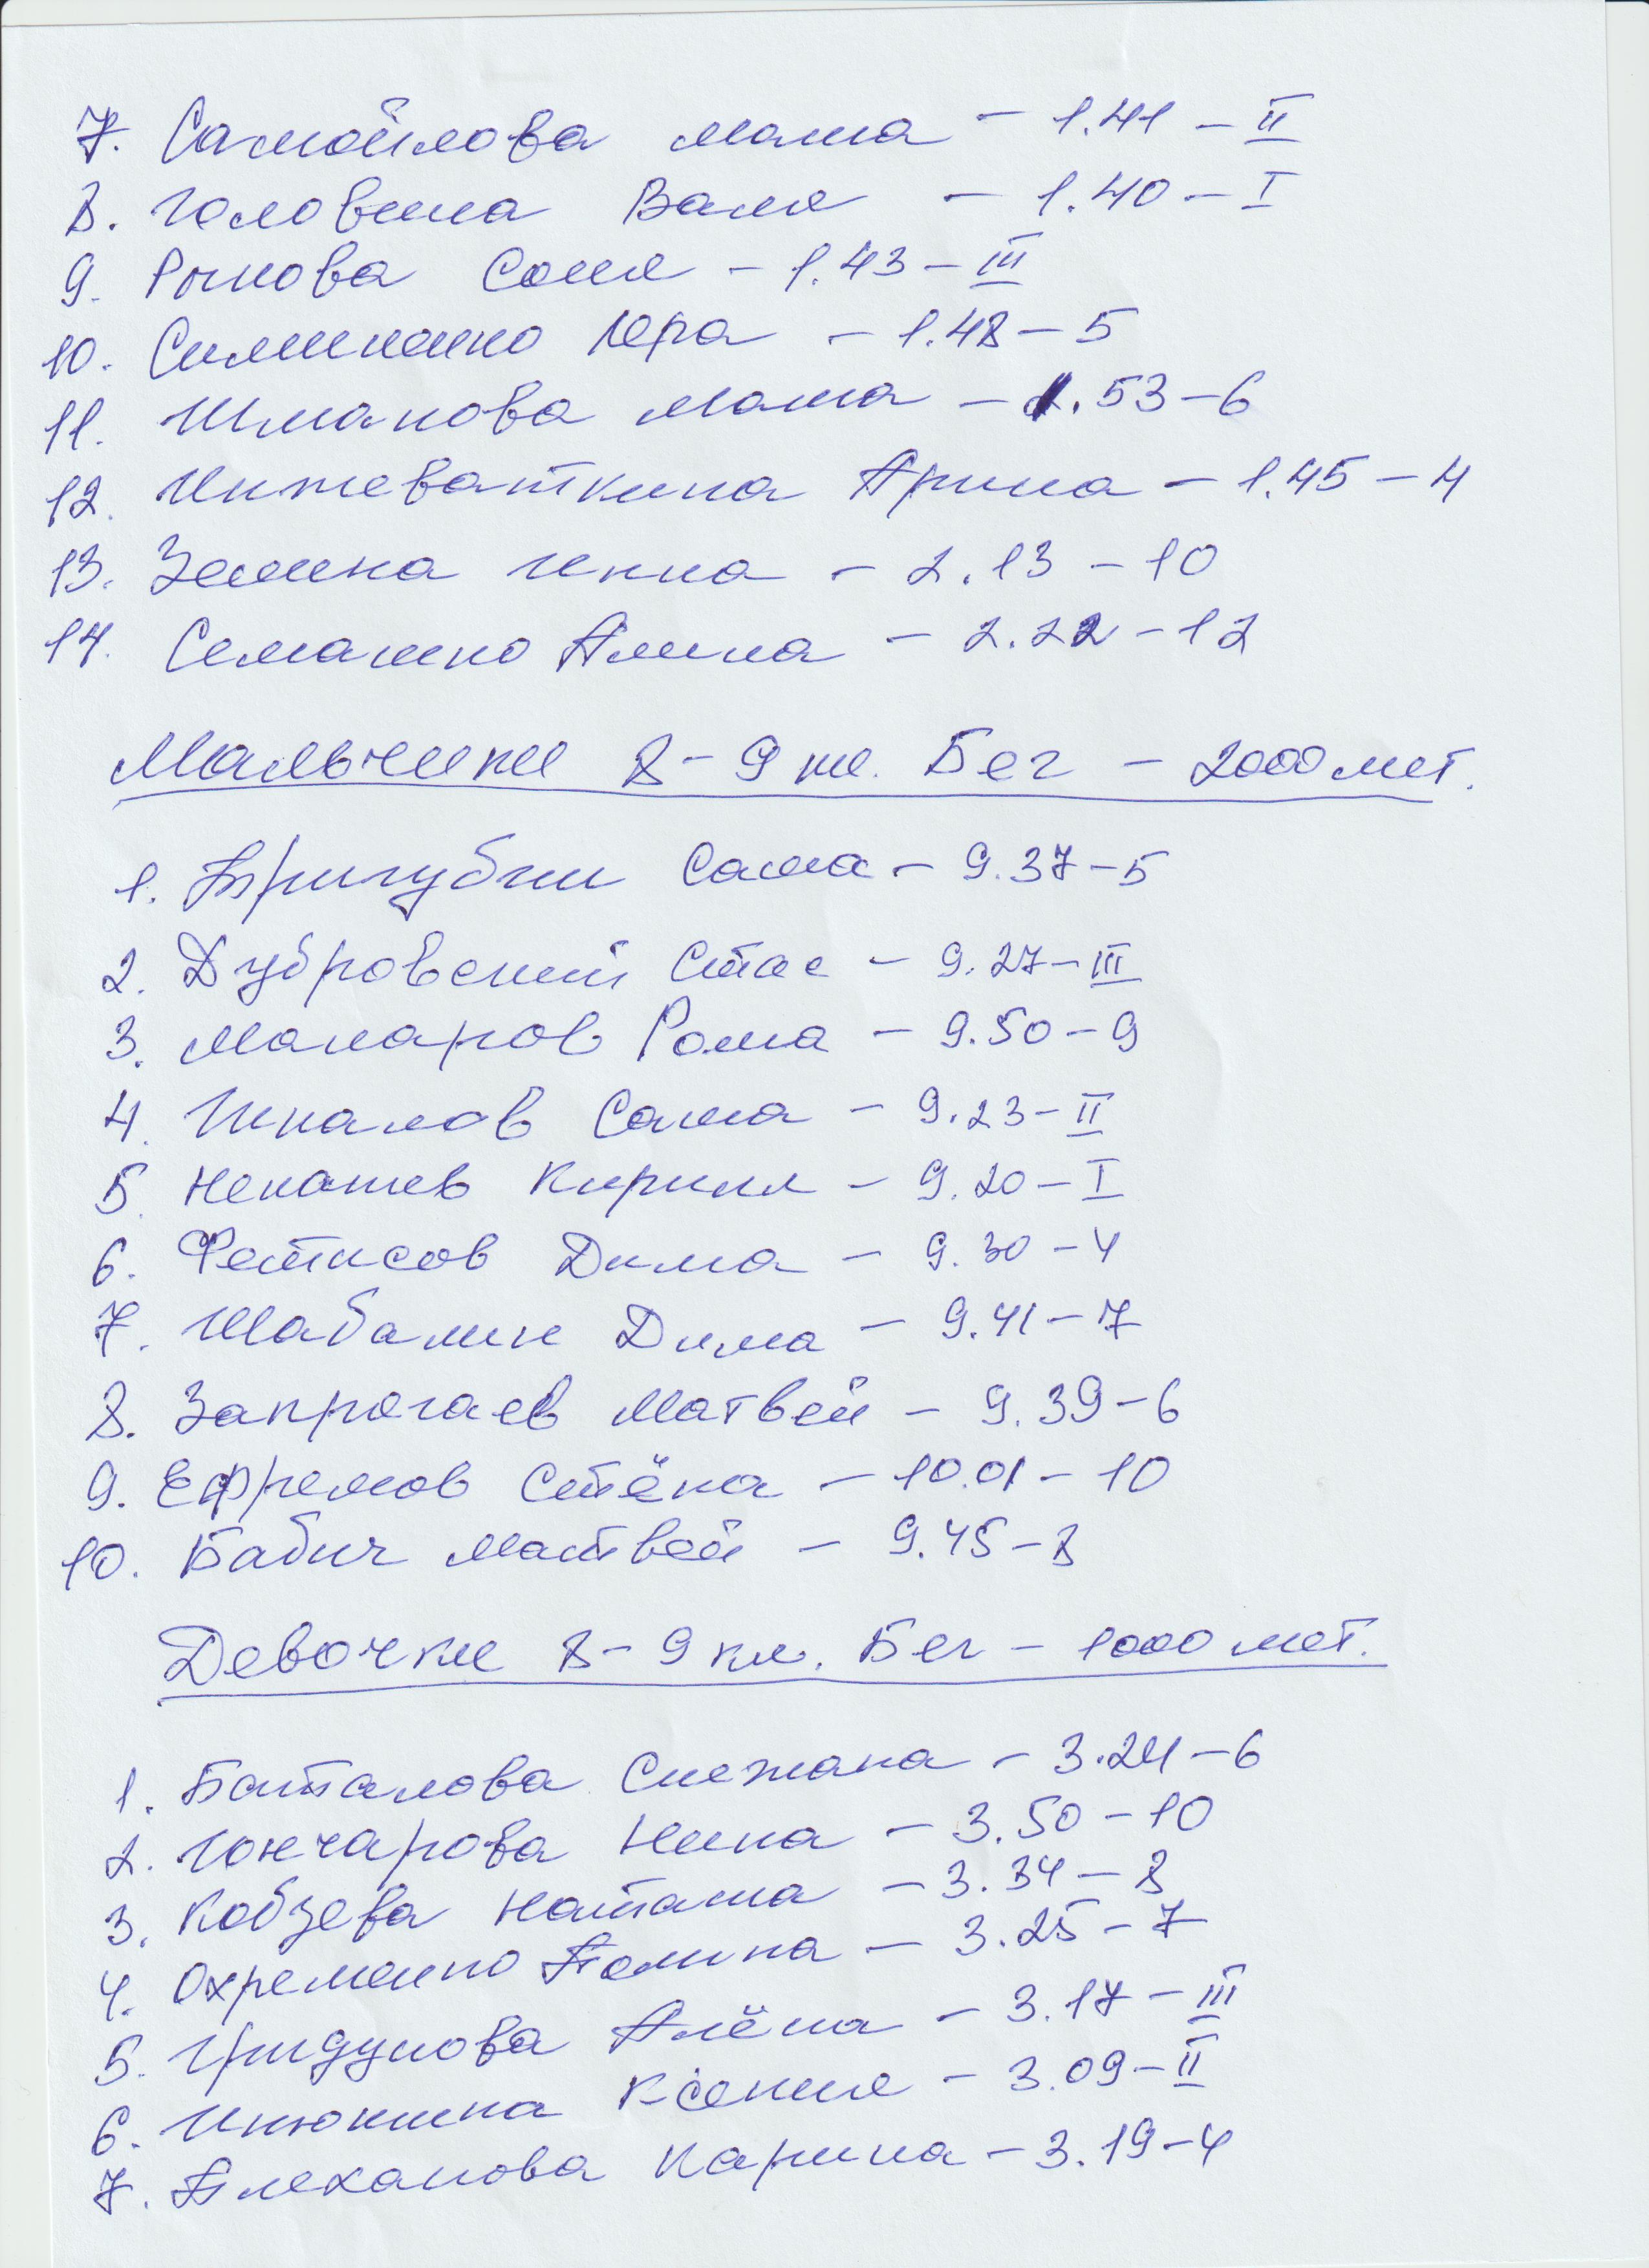 7. Самойлова Маша - 1.41 - II
8. Головина Валя - 1.40 - I
9. Рочкова Соня - 1.43 - III
10. Симиненко Юра - 1.48 - 5
11. Шмакова Маша - 1.53 - 6
12. Инжеваткина Арина - 1.45 - 4
13. Зимина Инна - 2.13 - 10
14. Семашко Алина - 2.22 - 12
Мальчики 8-9 кл. Бег - 2000 мет.
1. Пригубин Саша - 9.37 - 5
2. Дубровский Стас - 9.27 - III
3. Макаров Рома - 9.50 - 9
4. Шкалов Саша - 9.23 - II
5. Некашев Кирилл - 9.20 - I
6. Фетисов Дима - 9.30 - 4
7. Шабалин Дима - 9.41 - 7
8. Запрягаев Матвей - 9.39 - 6
9. Ефремов Стёпа - 10.01 - 10
10. Бабич Матвей - 9.45 - 8
Девочки 8-9 кл. Бег - 1000 мет.
1. Баталова Снежана - 3.24 - 6
2. Гончарова Нина - 3.50 - 10
3. Кобзева Наташа - 3.34 - 8
4. Охременко Полина - 3.25 - 7
5. Гридунова Алёна - 3.17 - III
6. Инюшина Ксения - 3.09 - II
7. Плеханова Карина - 3.19 - 4